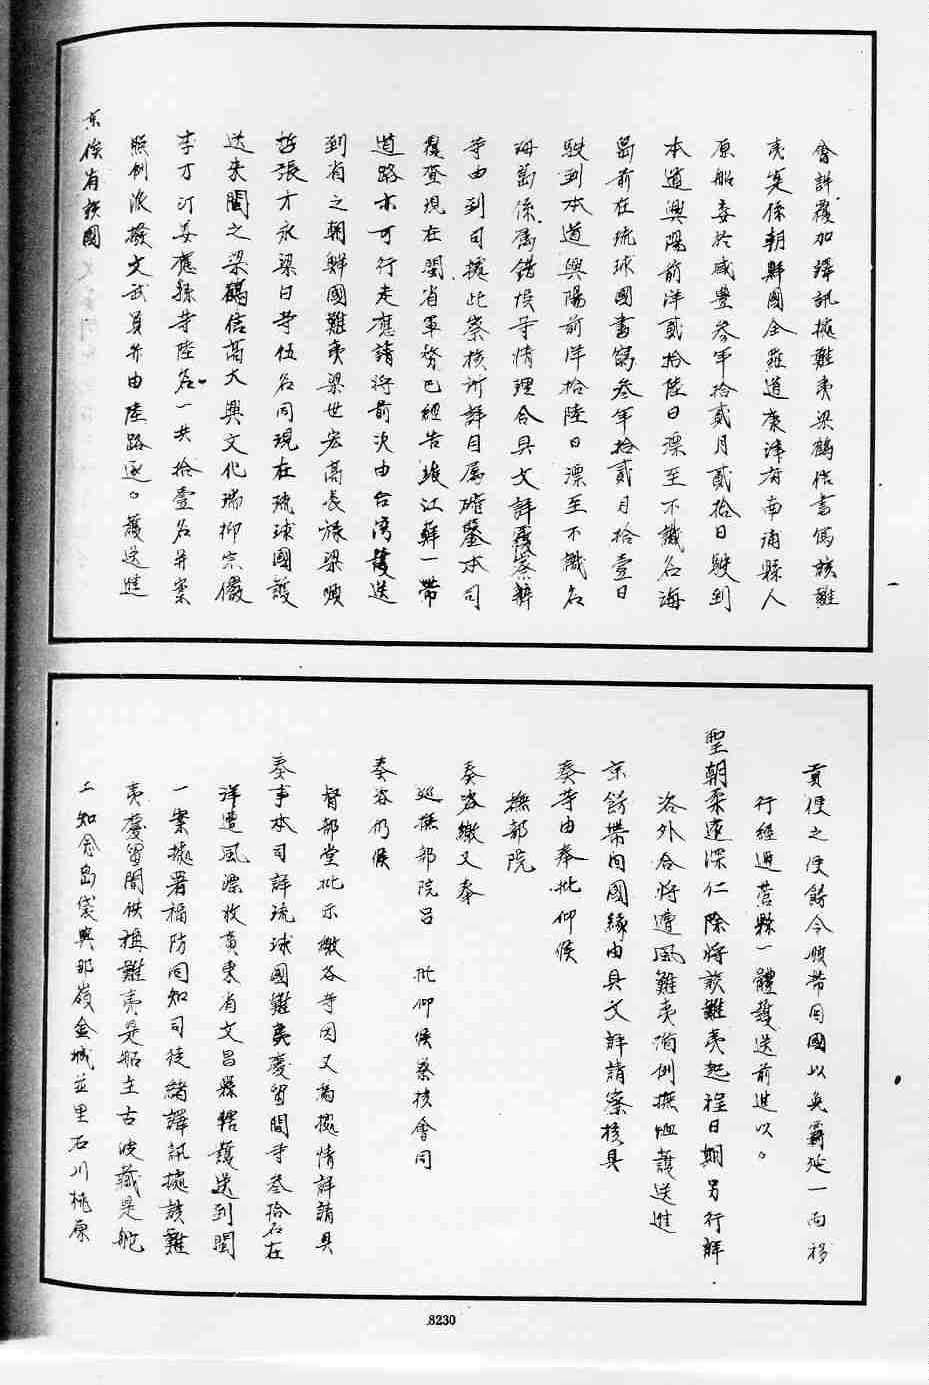 會詳覆加譯訊據難夷梁鶴信書寫該難
夷寔係朝鮮國全羅道康津府南浦縣人
原船委於咸豐叁年拾貳月貳拾日駛到
本道興陽前洋貳拾陸日漂至不識名海
島前在琉球國書寫叁年拾貳月拾壹日
駛到本道興陽前洋拾陸日漂至不識名
海島係屬錯悞等情理合具文詳覆察辦
等由到司據此察核所詳自屬確鑿本司
覆查現在閩省軍務已經告竣江蘇一帶
道路亦可行走應請將前次由台灣護送
到省之朝鮮國難夷梁世宏高長祿梁順
哲張才永梁日等伍名同現在琉球國護
送來閩之梁鶴信高大興文化瑞柳宗儼
李才汀姜應孫等陸名一共拾壹名并案
照例派撥文武員弁由陸路逐。護送進
京俟有該國
貢使之便飭令順帶回國以免羈延一面移
行經過營縣一體護送前進以。
聖朝柔遠深仁除將該難夷起程日期另行詳
洛外合將遭風難夷循例撫恤護送進
京飭帶回國緣由具文詳請察核具
奏等由奉批仰候
撫部院
奏咨繳又奉
巡撫部院呂　批仰候察核會同
奏咨仍候
督部堂批示繳各等因又為據情詳請具
奏事本司詳琉球國難夷慶留間等叁拾名在
洋遭風漂收廣東省文昌縣轄護送到閩
一案據署福防同知司徒緒譯訊據該難
夷慶留間供稱難夷是船主古波藏是舵
工知念島袋與那嶺金城並里石川桃原
8230